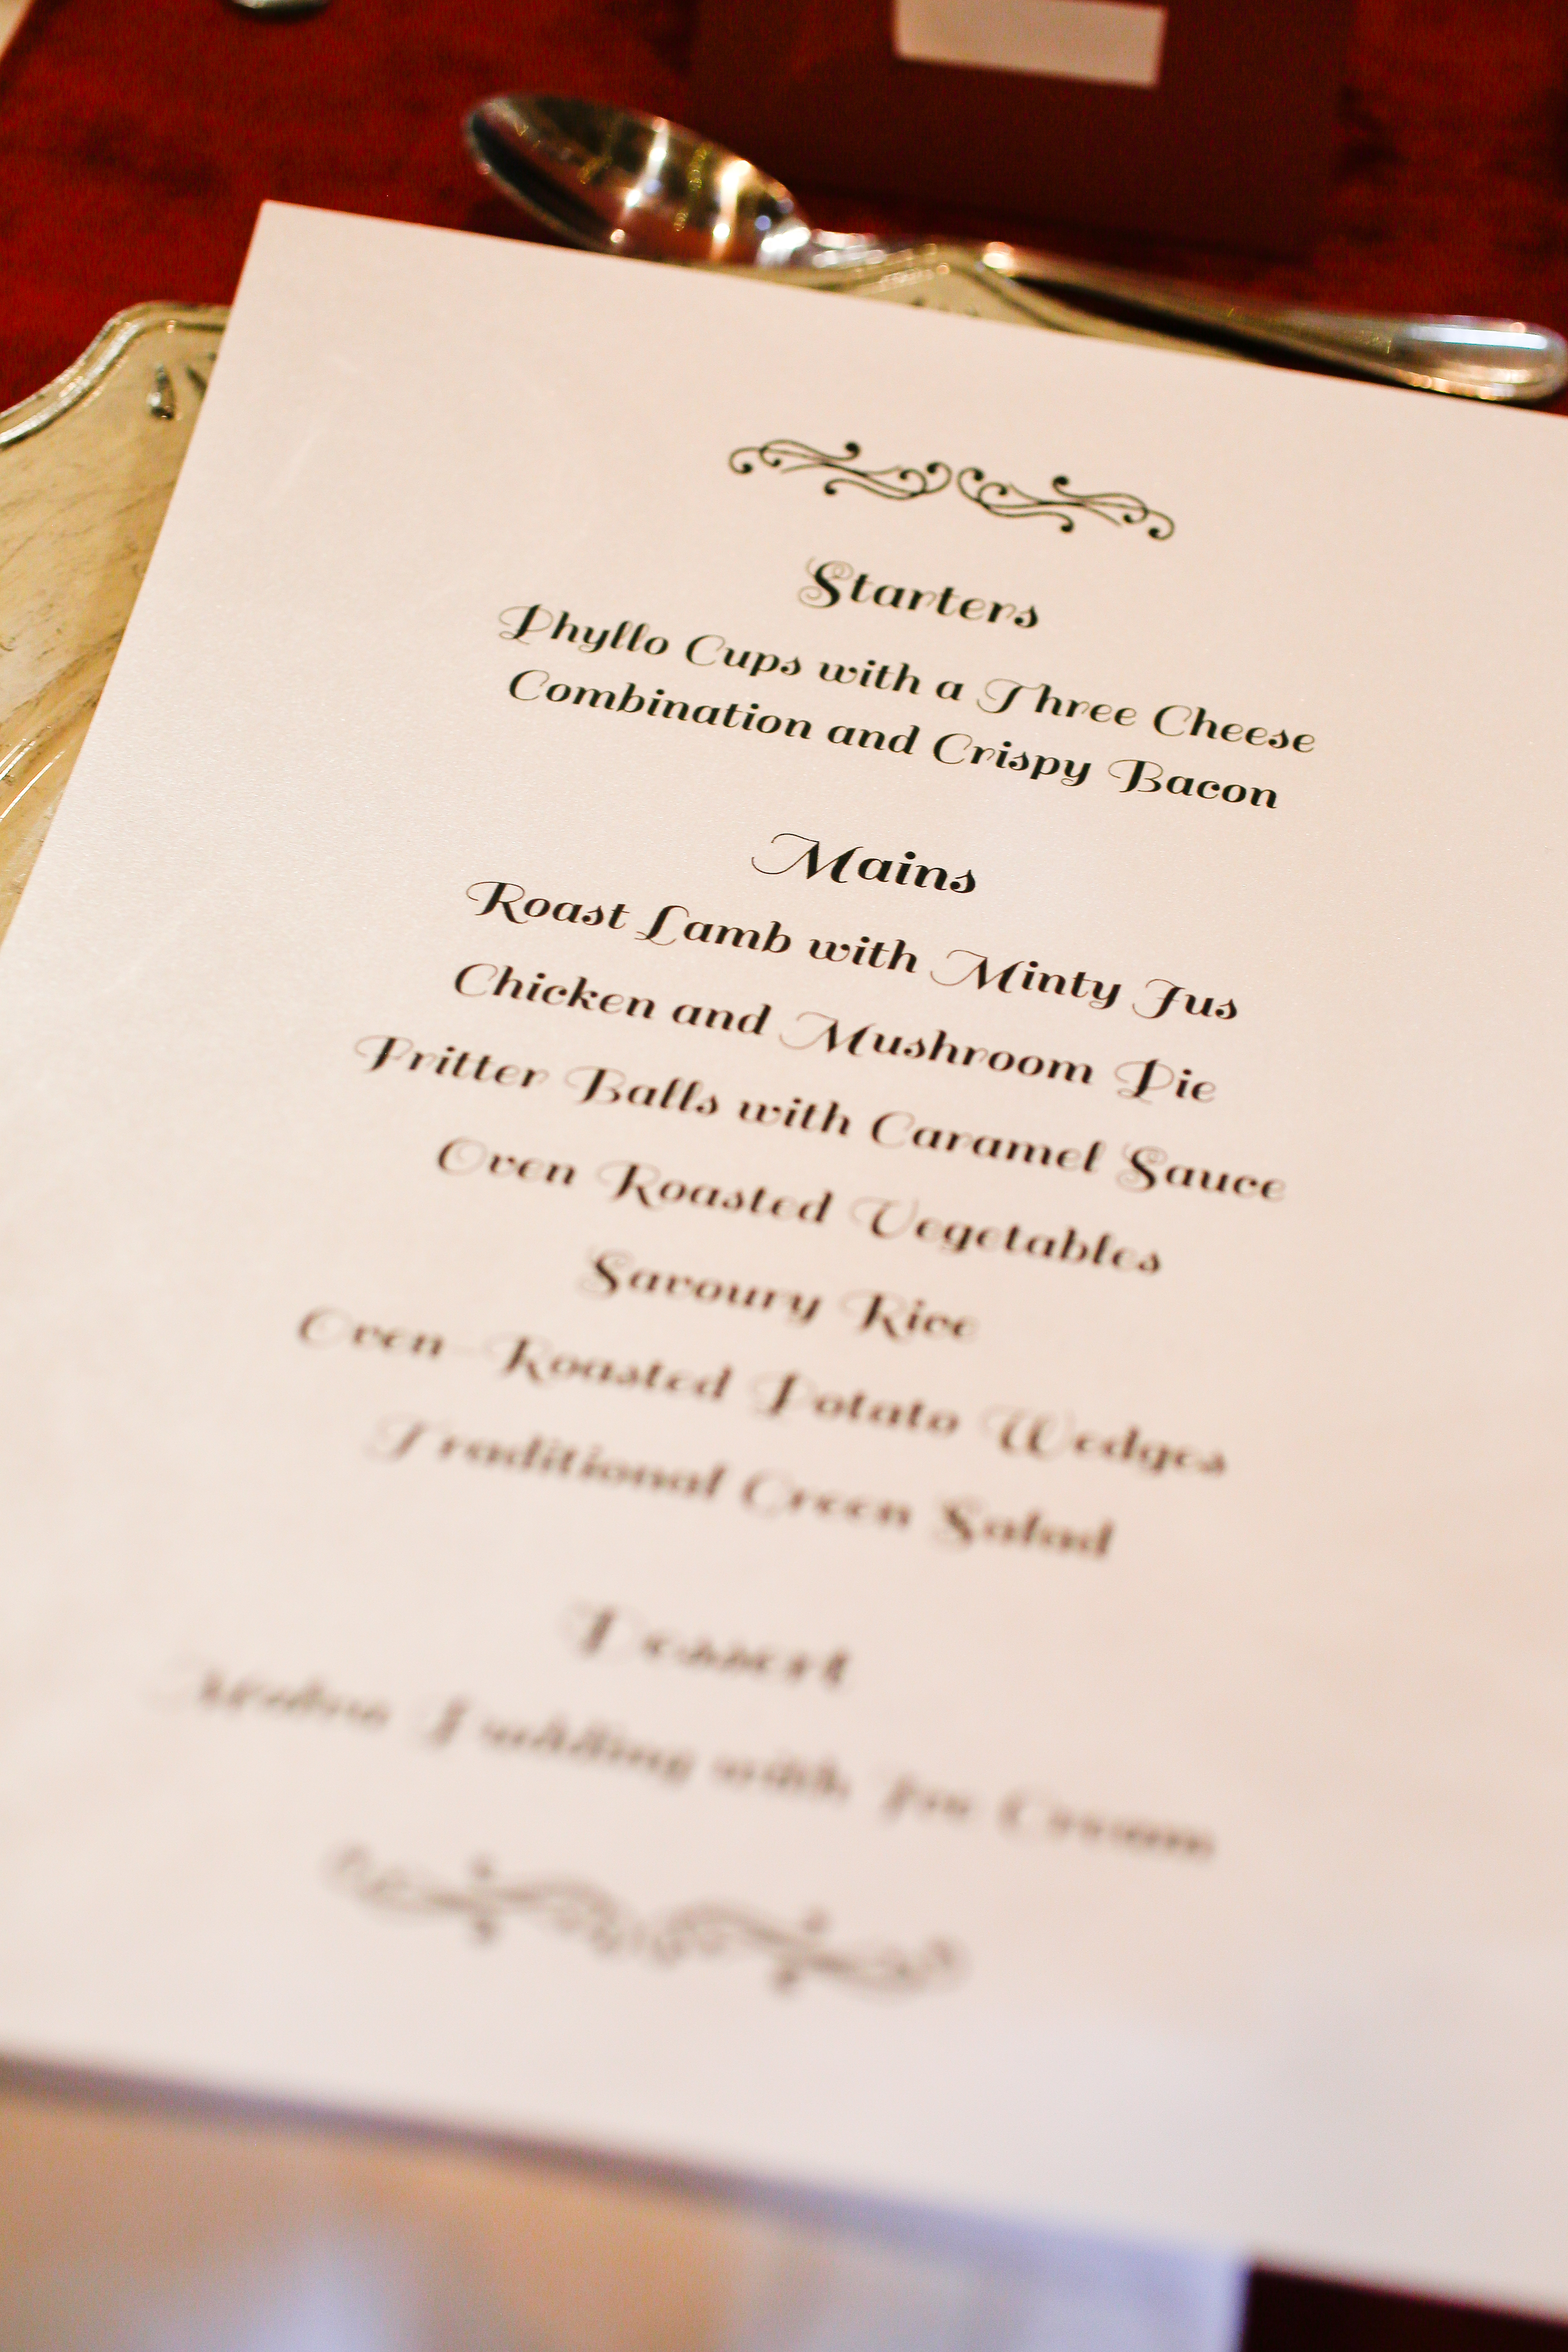 Starters
Phyllo Cups with a Three Cheese
Combination and Crispy Bacon
Mains
Roast Lamb with Minty Jus
Chicken and Mushroom Pie
Fritter Balls with Caramel Sauce
Oven Roasted Vegetables
Savoury Rice
Oven-Roasted Potato Wedges
Traditional Green Salad
Dessert
Malva Pudding with Ice Cream